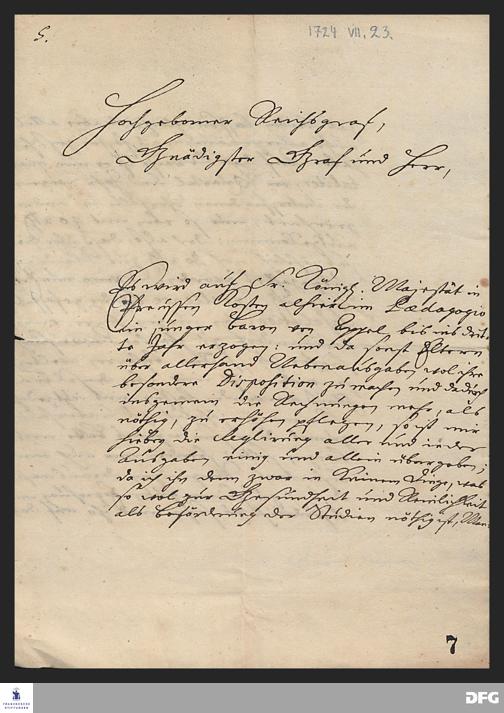 5.
1724 VII. 23.
Hochgeborner Reichsgraf,
Gnädigster Graf und Herr,
Es wird auf Sr. Königl. Majestät in
Preussen Kosten alhier im Pædagogio
ein junger Baron von Appel bis ins drit-
te Jahr erzogen: und da sonst Eltern
über allerhand Nebenausgaben wol ihre
besondere Disposition zu machen und dadurch
insgemein die Rechnungen mehr, als
nöthig, zu erhöhen pflegen, so ist mir
hiebey die Regierung aller und ieder
Ausgaben einig und allein übergeben;
da ich ihn denn zwar in keinem Dinge, was
so wol zur Gesundheit und Reinlichkeit
als Beförderung der Studien nöthig ist,
7
FRANCKESCHE
STIFTUNGEN
DFG